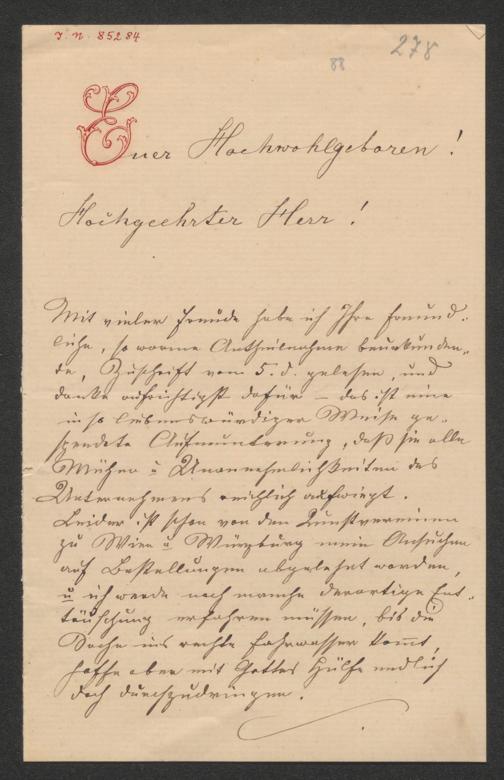 I. N. 85284
278
88
Euer Hochwohlgeboren!
Hochgeehrter Herr!
Mit vieler Freude habe ich Ihre freund-
liche, so warme Antheilnahme beurkunden-
de, Zuschrift vom 5. d. gelesen, und
danke aufrichtigst dafür – das ist eine
in so liebenswürdiger Weise ge-
spendete Aufmunterung, daß sie alle
Mühen u Unannehmlichkeiten des
Unternehmens reichlich aufwiegt.
Leider ist schon von den Kunstvereinen
zu Wien u Würzburg mein Ansuchen
auf Bestellungen abgelehnt worden,
u ich werde noch manche derartige Ent-
täuschung erfahren müssen, bis die
Sache ins rechte Fahrwasser kommt,
hoffe aber mit Gottes Hülfe endlich
doch durchzudringen.